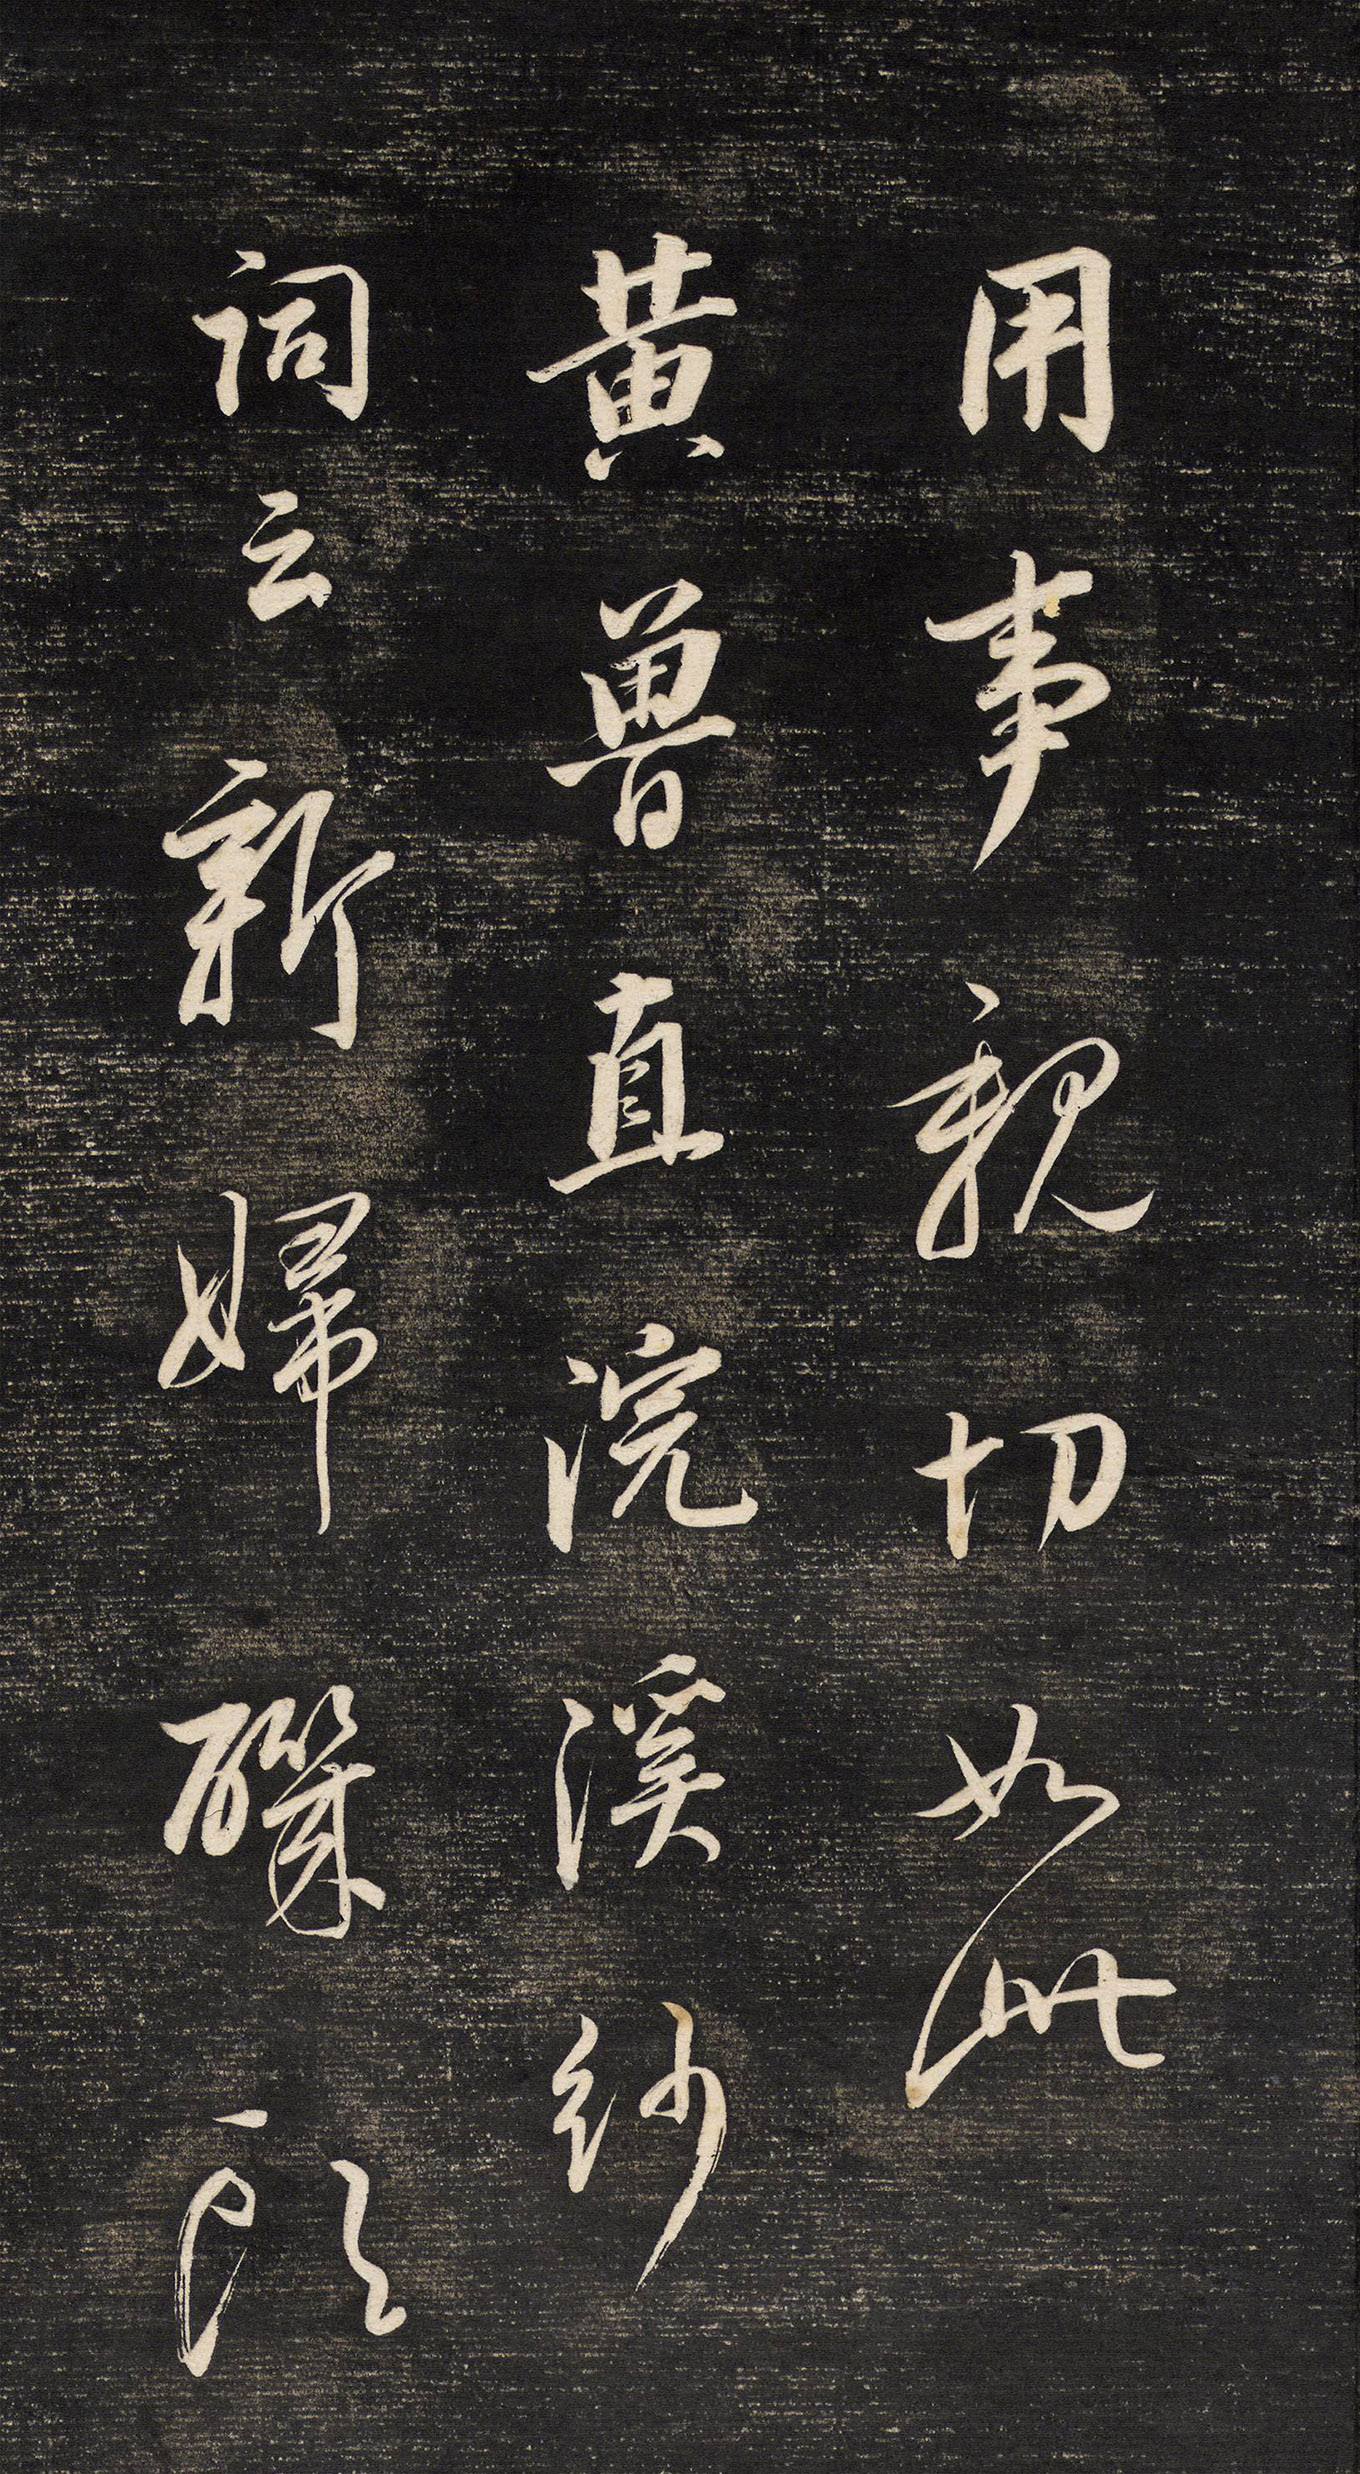 用事親切如此
黄魯直浣溪紗
詞云新婦磯頭